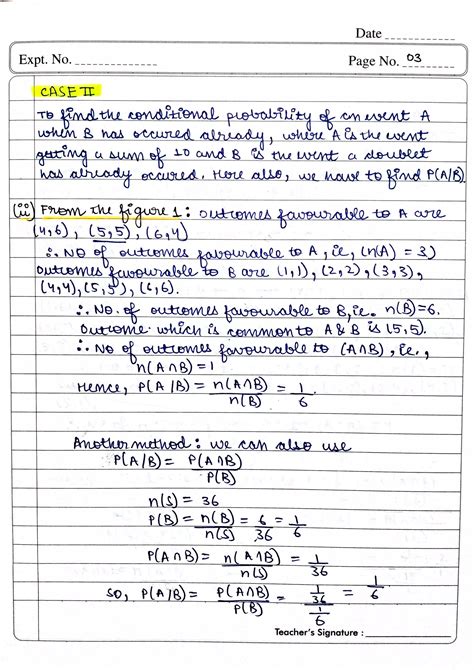 Date
Expt. No.
Page No. 03
CASE II
To find the conditional probability of an event A
when B has occured already, where A is the event
getting a sum of 10 and B is the event a doublet
has already occured. Here also, we have to find P(A/B)
(ii) From the figure 1: outcomes favourable to A are
(4,6), (5,5), (6,4)
∴ NO of outcomes favourable to A, ie, (n(A) = 3)
outcomes favourable to B are (1,1), (2,2), (3,3),
(4,4), (5,5), (6,6).
∴ No. of outcomes favourable to B, ie. n(B)=6.
Outcome which is common to A & B is (5,5).
∴ No of outcomes favourable to (A∩B), ie.,
n(A∩B) = 1
Hence, P(A/B) = n(A∩B)/n(B) = 1/6
Another method: we can also use
P(A/B) = P(A∩B)/P(B)
n(S) = 36
P(B) = n(B)/n(S) = 6/36 = 1/6
P(A∩B) = n(A∩B)/n(S) = 1/36
SO, P(A/B) = P(A∩B)/P(B) = 1/36/1/6 = 1/6
Teacher's Signature :